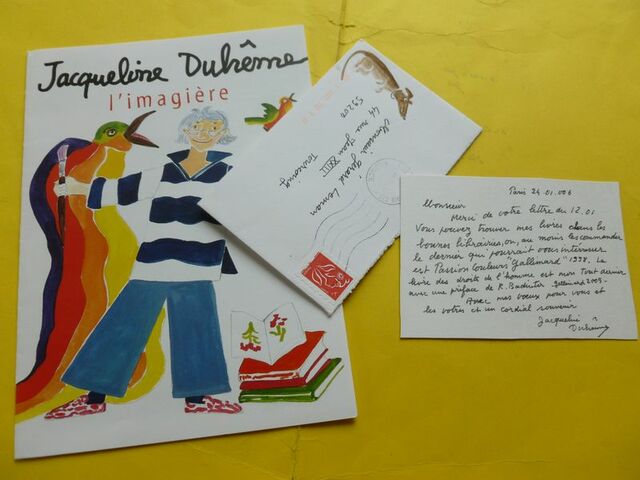 Jacqueline Duhême
l'imagière
Monsieur Gérard
44 rue Jean XXIII
59200
Tourcoing
Paris 24.01.006
Monsieur
Merci de votre lettre du 12.01
Vous pouvez trouver mes livres dans les
bonnes librairies, ou, au moins les commander
le dernier qui pourrait vous intéresser
est Passion Couleurs "Gallimard" 1998. Le
livre des droits de l'homme est mon tout dernier
avec une préface de R. Badinter Gallimard
Avec mes vœux pour vous et
les votres et un cordial souvenir
Jacqueline
Duhême